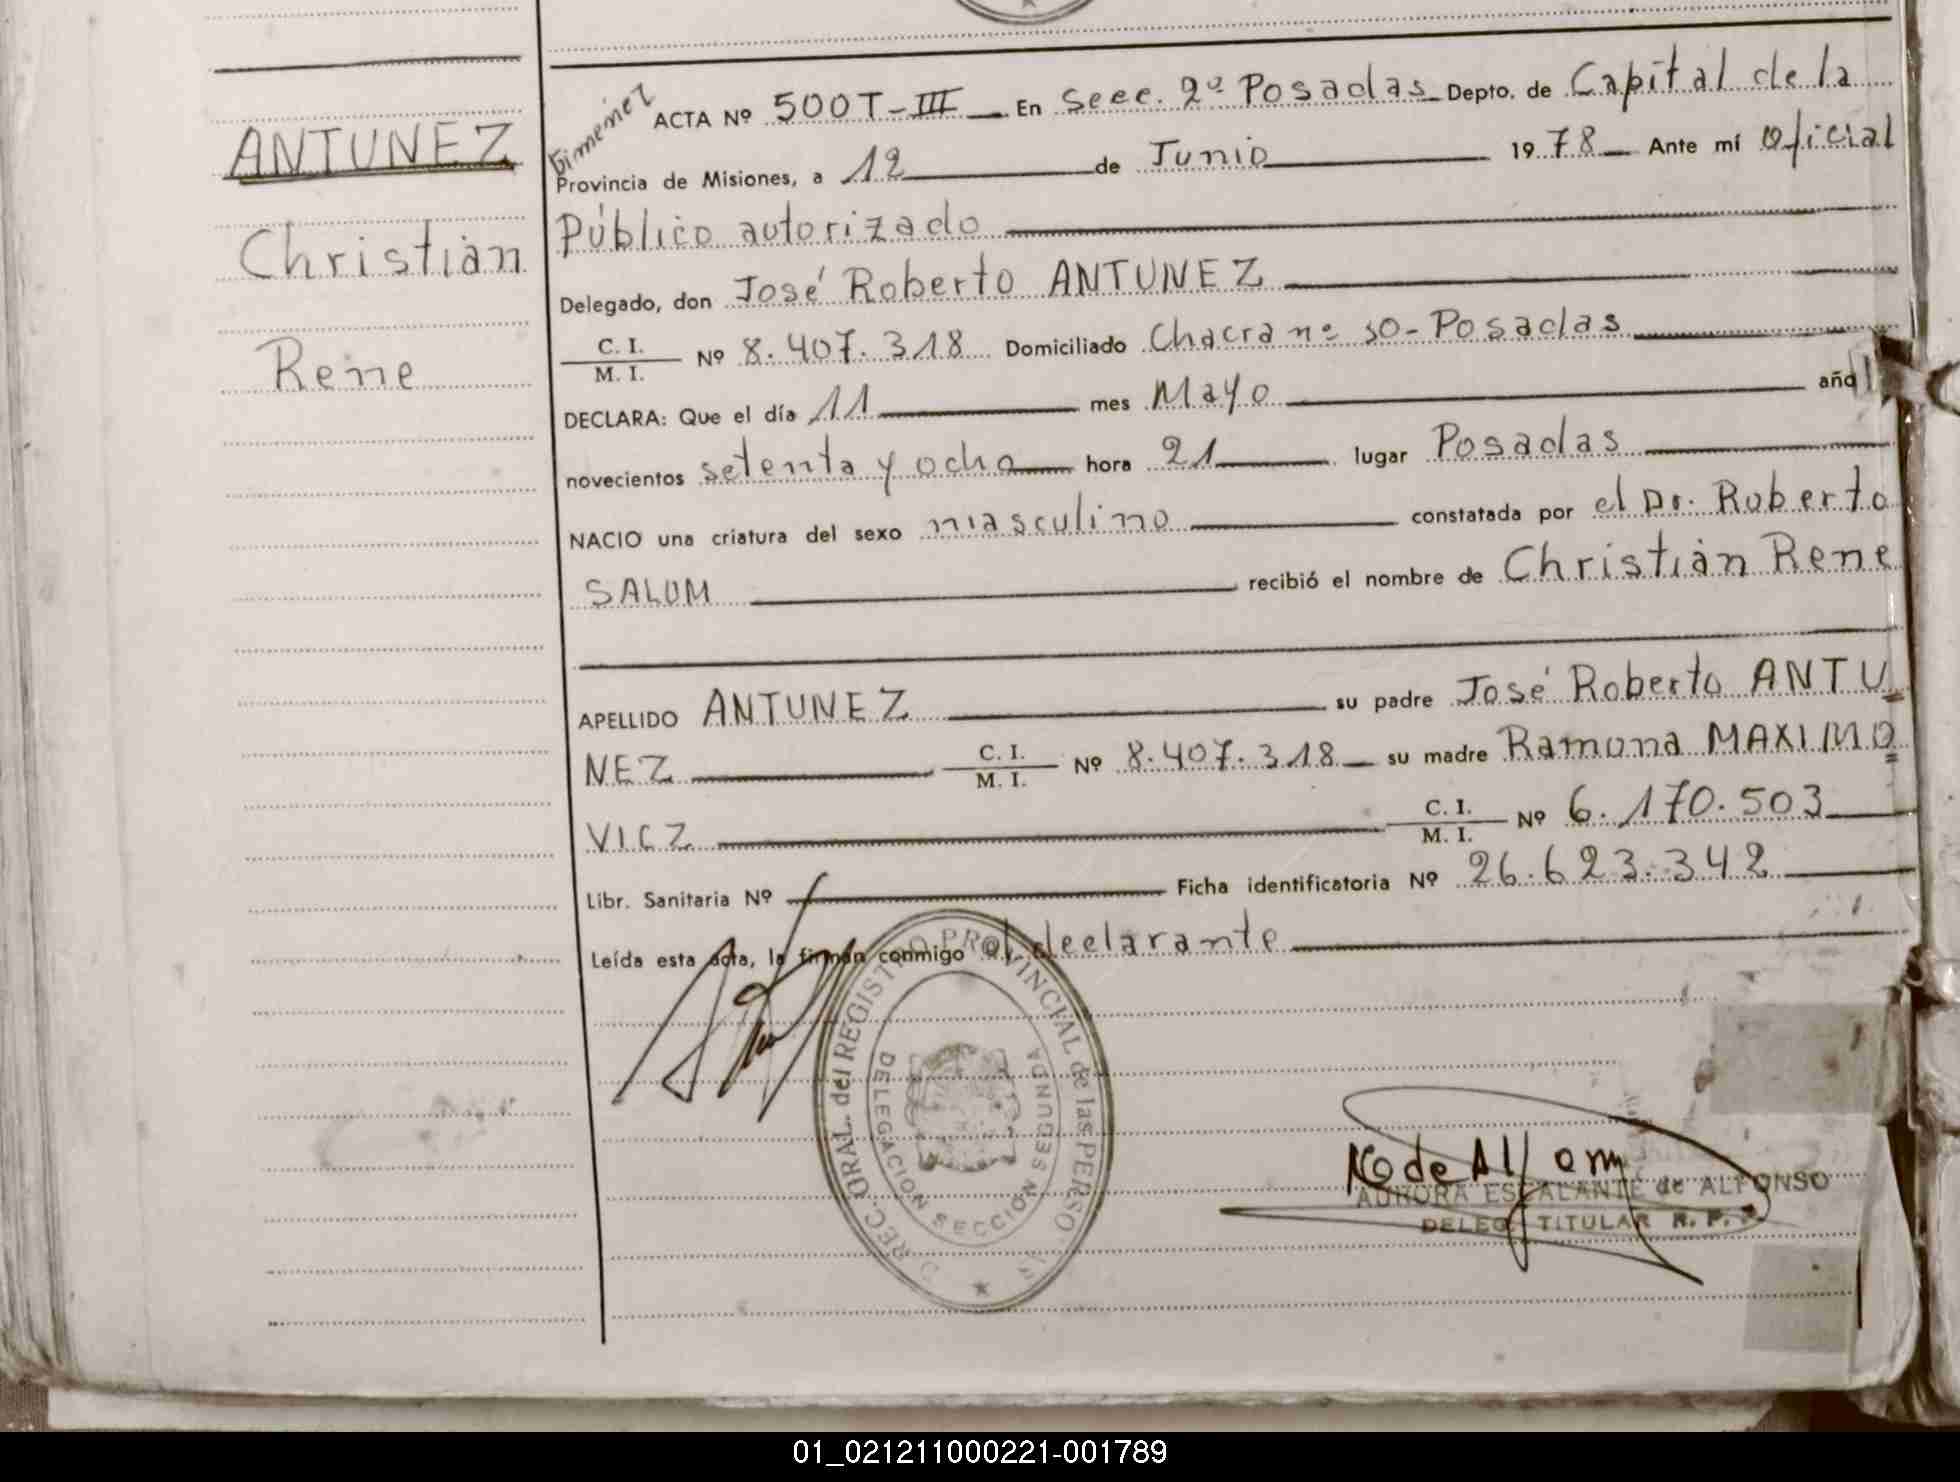 ANTUNEZ
Christian
Rene
Gimenez
ACTA Nº 500T-III En Secc. 2º Posadas Depto. de Capital de la
Provincia de Misiones, a 12 de Junio 1978 Ante mí Oficial
Público autorizado
Delegado, don José Roberto ANTUNEZ
C. I.
M. I. Nº 8.407.318 Domiciliado Chacra nº 50-Posadas
DECLARA: Que el día 11 mes Mayo año
novecientos setenta y ocho hora 21 lugar Posadas
NACIO una criatura del sexo masculino constatada por el Dr. Roberto
SALUM recibió el nombre de Christian Rene
APELLIDO ANTUNEZ su padre José Roberto ANTU
NEZ C. I. M. I. Nº 8.407.318 su madre Ramona MAXIMO
VICZ C. I. M. I. Nº 6.170.503
Libr. Sanitaria Nº Ficha identificatoria Nº 26.623.342
Leída esta acta, la firman conmigo el declarante
REC. GRAL. del REGISTRO PROVINCIAL de las PERSONAS
DELEGACION SECCION SEGUNDA
AURORA ESCALANTE de ALFONSO
DELEG. TITULAR R. P.
01_021211000221-001789